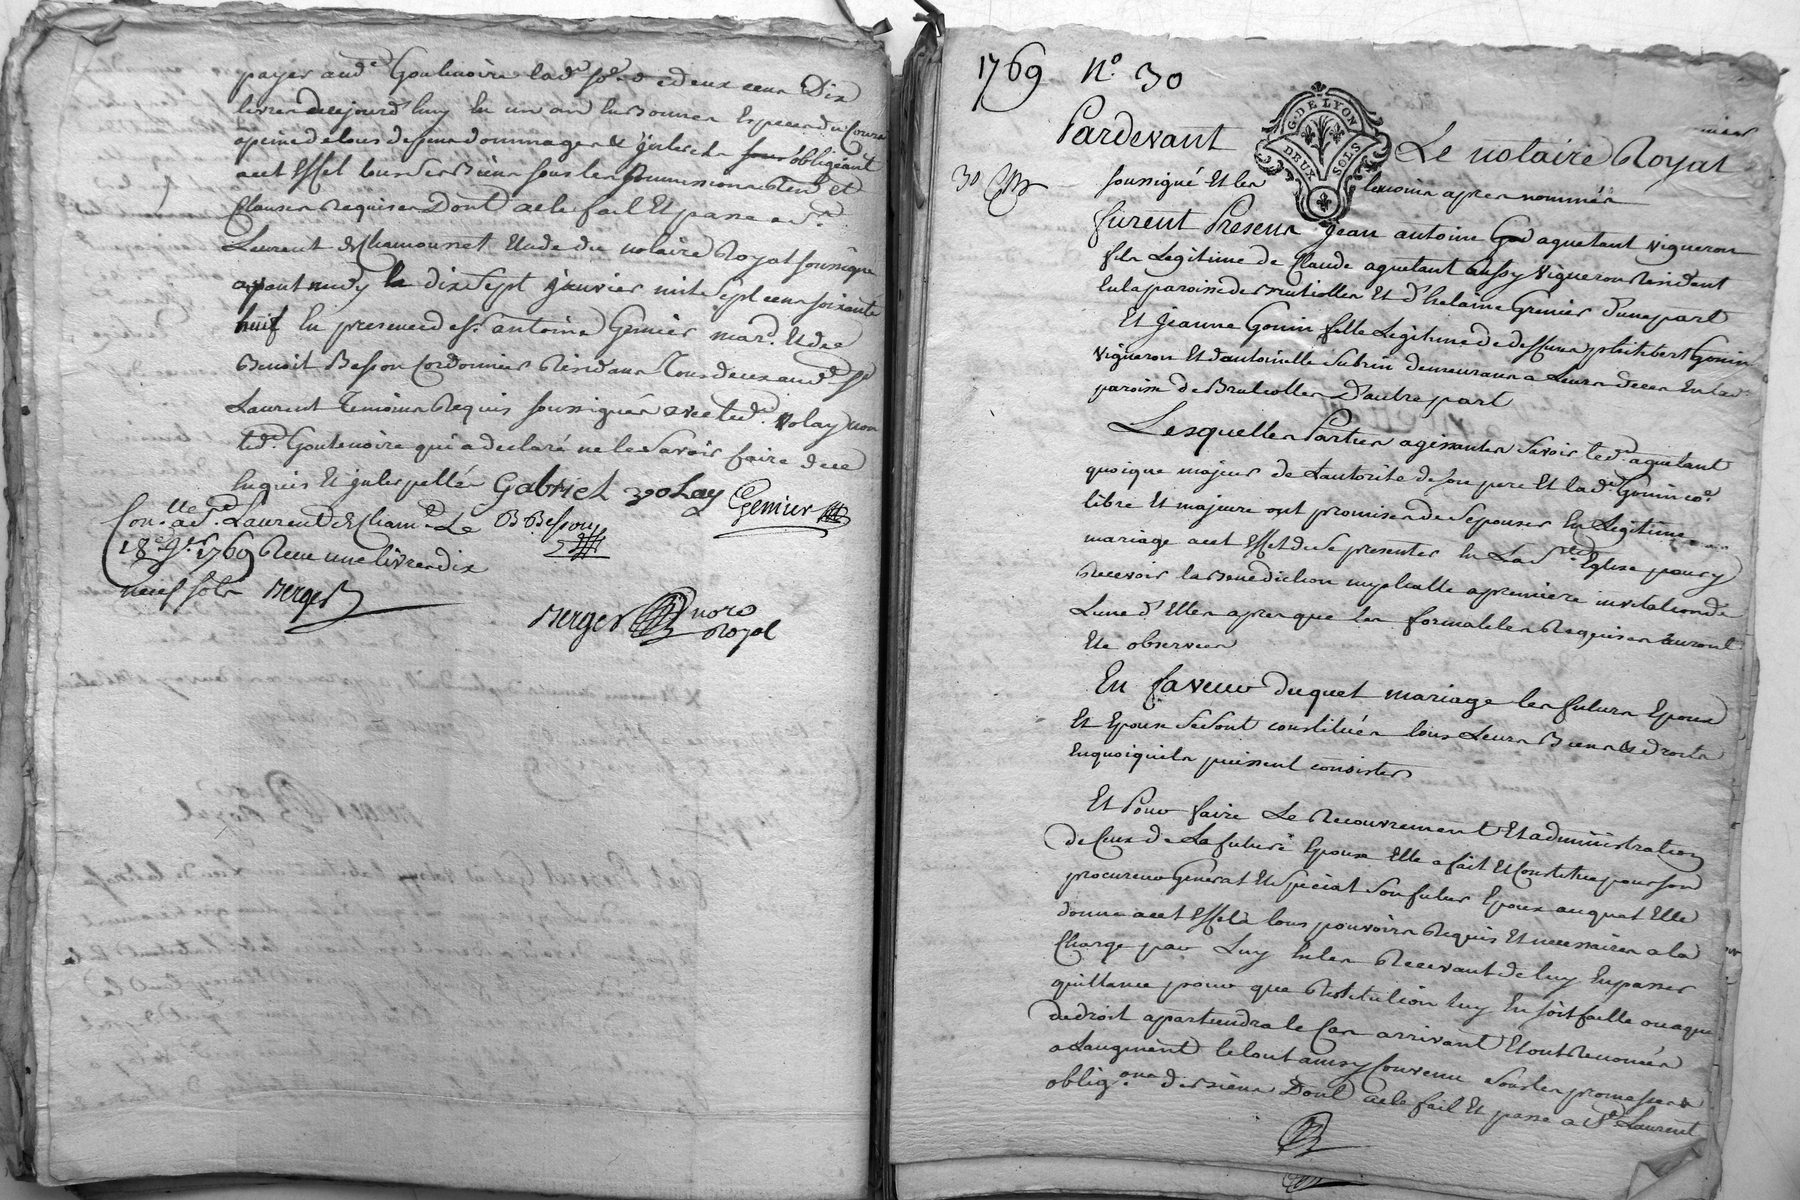 payer aud.t Goutenoire lad.e so.e de deux cens Dix
livres daujourd'huy En un an En bonnes Especes du Cours
apeine de tous depens dommages & jnterets obligeant
acet Effet tous ses Biens sous les soumissions Ren.ons et
Clauses Requises Dont acte fait Et passé a S.t
Laurent de Chamousset Etude du notaire Royal soussigné
avant midy le dix sept janvier mil sept cens soixante
neuf En presence de s.r antoine Genier mar.d Et de
Benoit Besson Cordonnier Residans Tous deux aud. S.t
Laurent Temoins Requis soussignés avec led. volay non
led. Goutenoire qui a declaré ne le savoir faire de ce
Enquis Et jnterpellés Gabriel volay Genier
B Besson
Con.lle a S.t Laurent de Cham.t Le
18.e j.er 1769 Recu une livre dix
neuf sols Berger
Berger no.re
Royal
1769 N.o 30
G. DE LYON
DEUX SOLS
Pardevant Le notaire Royal
30
soussigné Et les temoins apres nommés
furent Presens Jean antoine aquetant vigneron
fils Legitime de Claude aquetant aussy vigneron Resident
En la paroisse de Brutiolles Et d'helaine Grenier d'une part
Et Jeanne Gonin fille Legitime de deffunt philibert Gonin
vigneron Et d'antoinette Subrin demeurans a Leurs deces En lad.
paroisse de Brutiolles D'autre part
Lesquelles Parties agissantes savoir led. aquetant
quoique majeur de Lautorité de son pere Et lad. Gonin co.e
libre Et majeure ont promis de s'epouser En Legitime
mariage acet Effet de se presenter En La S.te Eglise pour y
Recevoir la Benediction nuptialle a premiere invitation de
Lune d'Elles apres que les formalités Requises auront
Eté observées
En faveur duquel mariage les futurs Epoux
Et Epouse se sont constitués tous Leurs Biens & droits
En quoi qu'ils puissent consister
Et Pour faire Le Recouvrement Et administration
de Ceux de La future Epouse Elle a fait Et Constitué pour son
procureur Général Et special son futur Epoux auquel Elle
donne acet Effet tous pouvoirs Requis Et necessaires a la
Charge par Luy En les Recevant de luy En passer
quittance pour que Restitution luy En soit faitte ou a qui
de droit apartiendra le Cas arrivant Et ont Renoncés
a Laugment le tout ainsy Convenu sous les promesses
oblig.ons des biens Dont acte fait Et passé a S.t Laurent